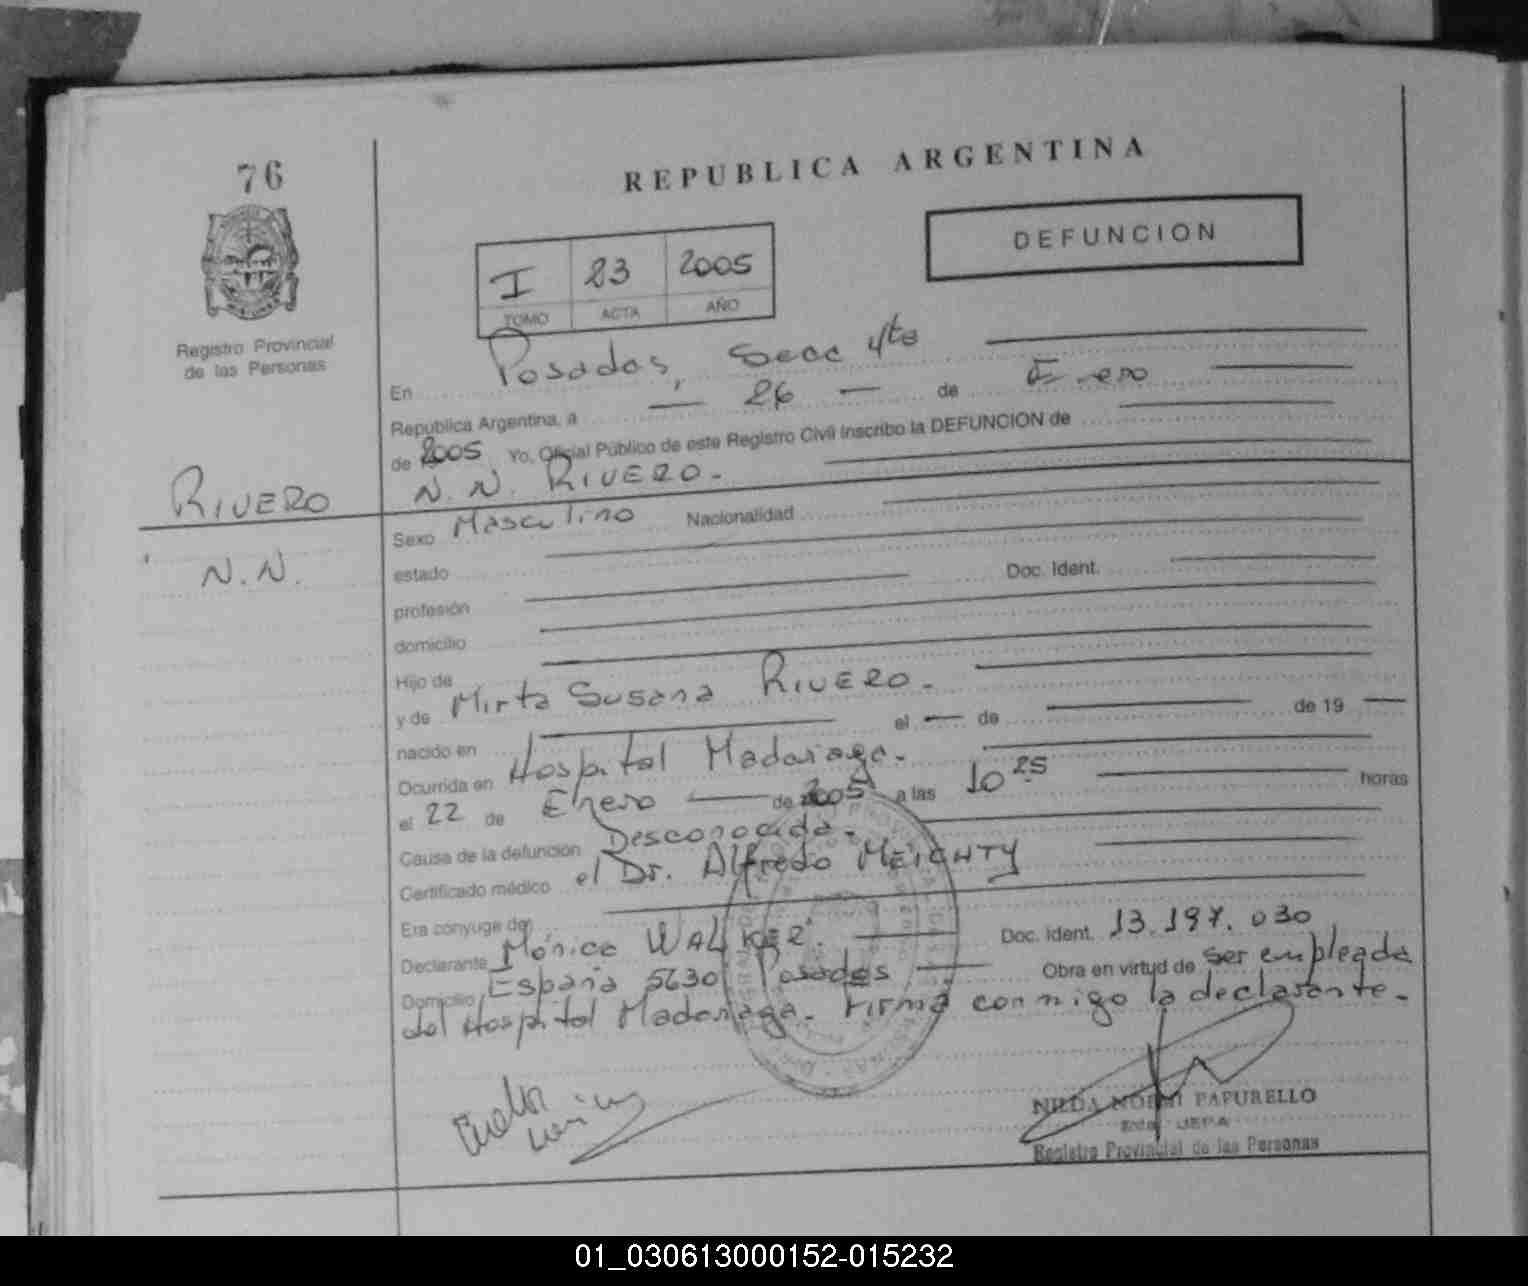 76
REPUBLICA ARGENTINA
DEFUNCION
I 23 2005
TOMO ACTA AÑO
Registro Provincial
de las Personas
En Posadas, Secc 4ta
Republica Argentina, a 26 de Enero
de 2005 Yo, Oficial Público de este Registro Civil inscribo la DEFUNCION de
RIVERO
N.N. RIVERO.
N.N.
Sexo Masculino Nacionalidad
estado
profesión Doc. Ident.
domicilio
Hijo de
y de Mirta Susana RIVERO.
nacido en el de de 19
Ocurrida en Hospital Madariaga.
el 22 de Enero de 2005 a las 10 25 horas
Causa de la defunción Desconocida.
Certificado médico el Dr. Alfredo MEIGHTY
Era cónyuge de
Declarante Mónica WALKER. Doc. Ident. 13.197.030
Domicilio España 5630 Posadas Obra en virtud de ser empleada
del Hospital Madariaga. Firma conmigo la declarante.
NILDA NOEMI PAPURELLO
Registro Provincial de las Personas
01_030613000152-015232